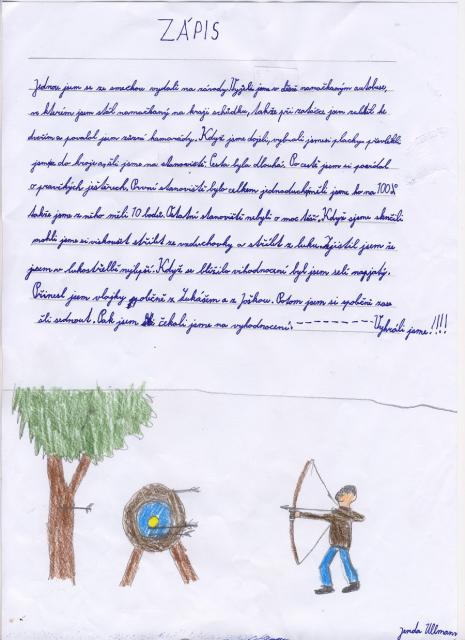 ZÁPIS
Jednou jsem se ze smečkou vydali na závody. Vyjeli jsme v namačkaným autobuse,
ve kterém jsem stál namačkaný na kraji schůdku, takže při zatáčce jsem
dveřím a povalol jsem různé kamarády. Když jsme dojeli, vybrali jsme si plachy a převlékli
jsme do kroje a šli jsme na stanoviště. Cesta byla dlouhá. Po cestě jsem si povídal
o pravěkých ještěrech. První stanoviště bylo celkem jednoduché měli jsme ho na 100%
takže jsme z něho měli 10 bodů. Ostatní stanoviště nebyli o moc těžší. Když jsme skončili
mohli jsme si viskoušet střílet ze vzduchovky a střílet z luku. Zjistil jsem že
jsem v lukostřelbě nejlepší. Když se blížilo vihodnocení byl jsem celí napjatý.
Přinesl jsem vlajky společně z Lukášem a z Joškou. Potom jsem si spobění zase
šli sednout. Pak jsem čekali jsme na vyhodnocení. ---------- Vyhráli jsme!!!!
Jenda Ullmann